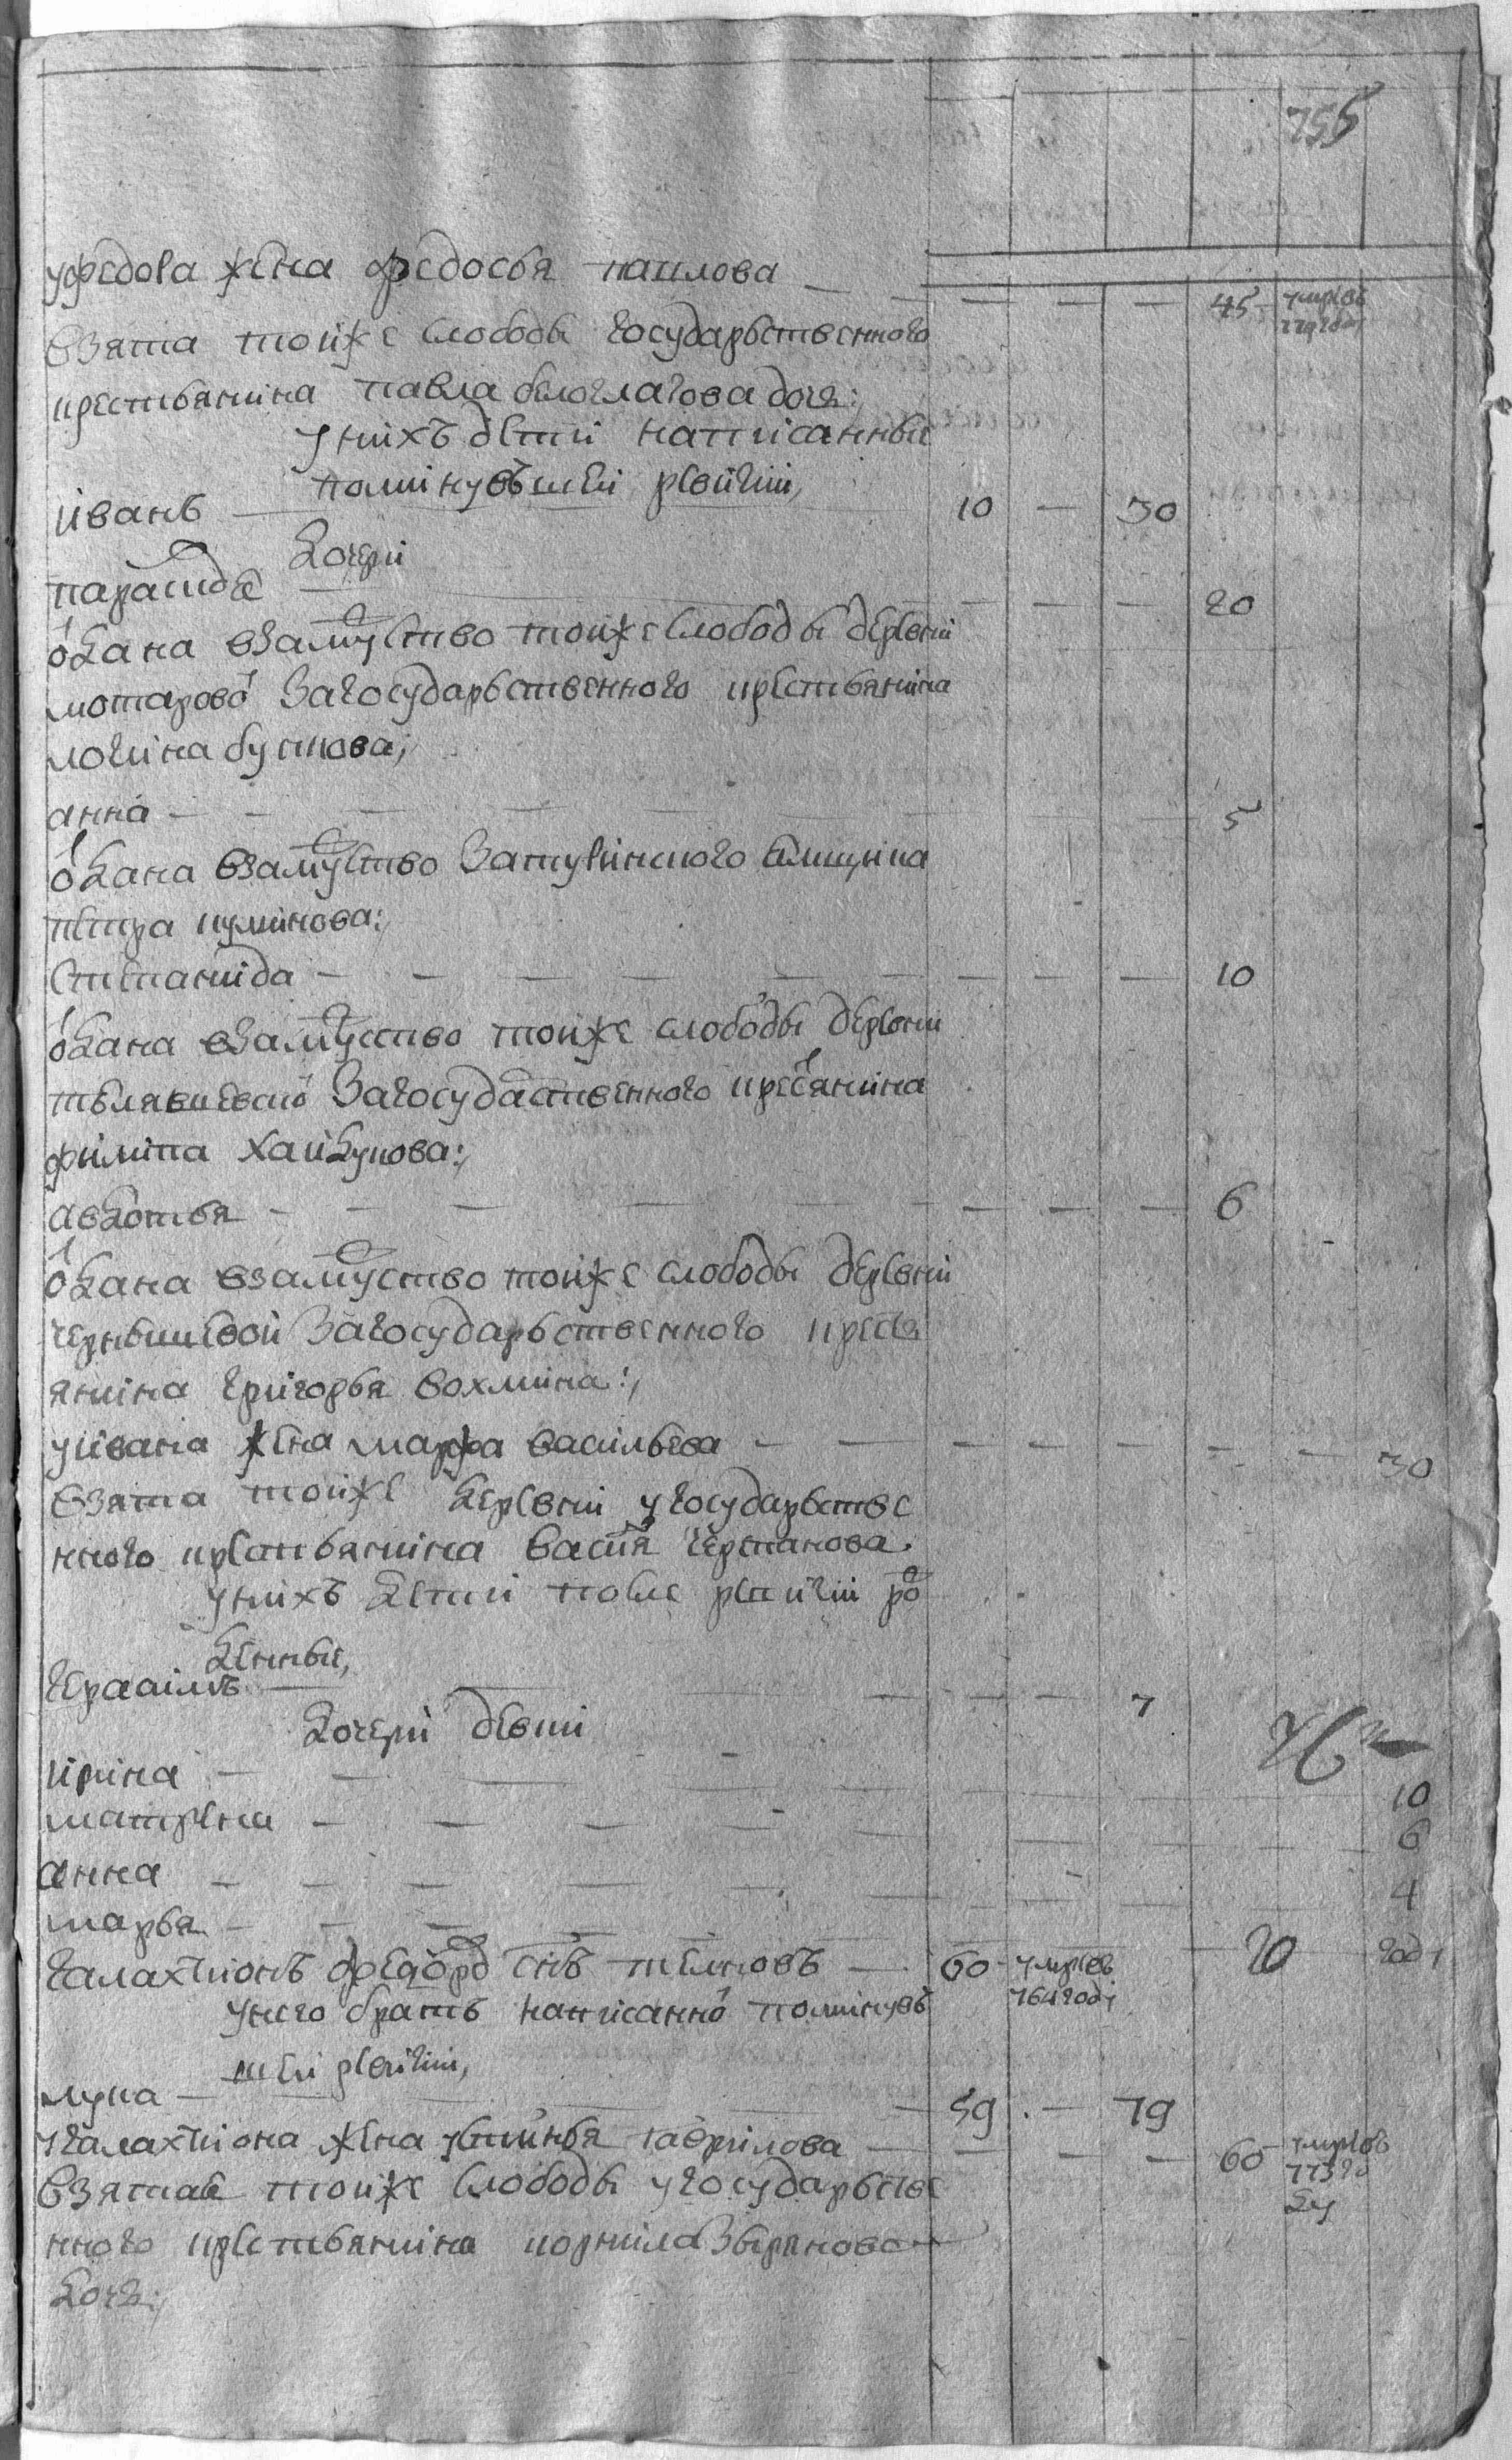 755
уфедора жена федосья павлова — — — — 45 умре въ
взята тойже слободы государственного
крестьянина павла белоглазова дочь:
у нихъ детеи написанныя
помінувъшеи ревизіи,
іванъ — 10 — 30
дочери
парасковья — — — — 20
одана взамуство тойже слободы деревни
мотаровой загосударьственного крестьянина
логина буткова;
анна — — — 5
одана взамуство за
петра куликова:
степанида — — — 10
одана взамуство тойже слободы деревни
загосударственного кресьянина
филипа хайдукова:
авдотья — — — 6
одана взамуство тойже слободы деревни
чернышевой загосударьственного кресть
янина григорья вохмина:
уивана жена марфа васильева — — — 30
взята тойже деревни угосударьстве
нного крестьянина васілья черпанова.
у нихъ детеи после ревизіи ро
денные,
герасимъ — — — 7
дочери девки
ирина — — — 10
матрена — — — 6
анна — — — 4
марья — — — 20 году
галахтионъ федоровъ снъ — 60 умре въ
764 году
унего братъ написанной поминувъ
шеи ревизіи,
лука — 59 — 79
угалахтиона жена устинья гаврилова — — — 60 умре въ
773 го
ду
взятая тойже слободы угосударьстве
нного крестьянина корнила зверянова
дочь: